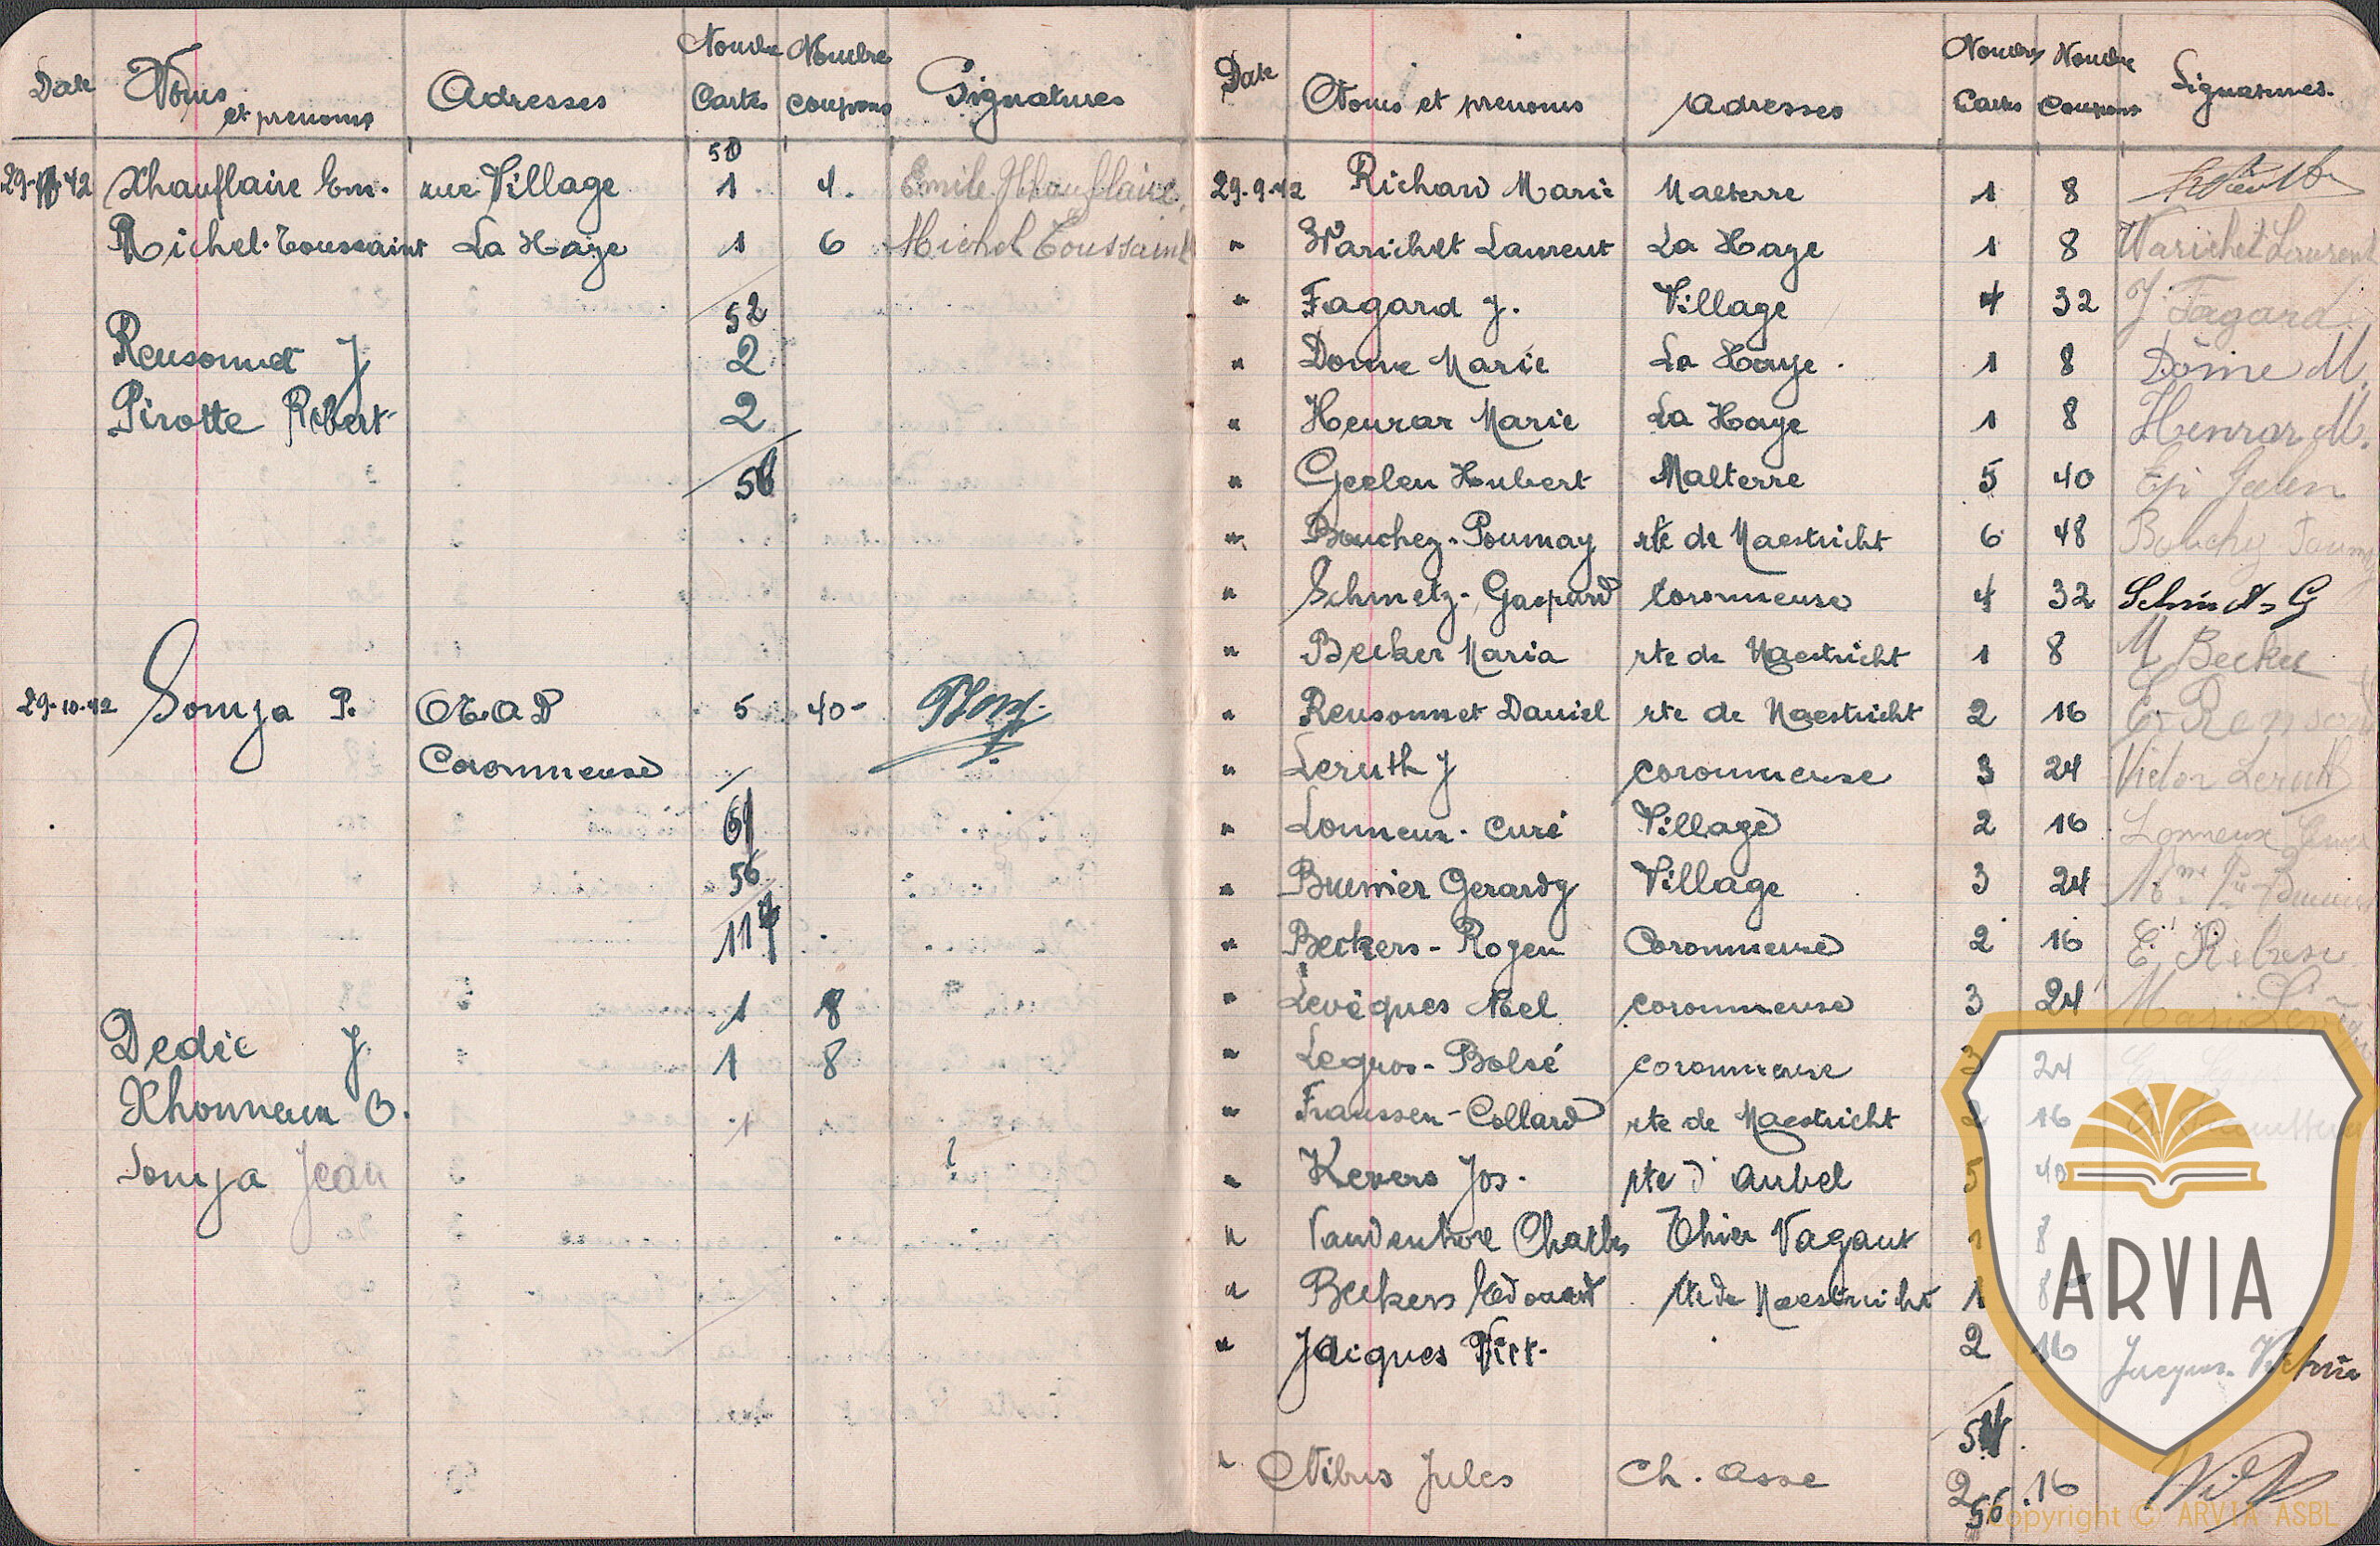 Date Noms et prenoms Adresses Nombre Cartes Nombre coupons Signatures
50
29-10-42 Xhauflaire Em. rue Village 1 4. Emile Xhauflaire
Michel-Toussaint La Haye 1 6 Michel Toussaint
52
Rensonnet J 2
Pirotte Robert 2
56
29-10-42 Somja P. 5 40-
Coronmeuse
61
56
117
1 8
Dedic J. 1 8
Xhonneux O. 1
Somja Jean ?
Date Noms et prenoms Adresses Nombre Cartes Nombre Coupons Signatures.
29-9-42 Richard Marie Malterre 1 8
" Warichet Laurent La Haye 1 8 Warichet Laurent
" Fagard J. Village 4 32 J Fagard
" Dome Marie La Haye. 1 8 Dôme M.
" Henrar Marie La Haye 1 8 Henrar M.
" Geelen Hubert Malterre 5 40 Geelen
" Bouchez-Poumay rte de Maestricht 6 48 Bouchez Poumay
" Schmetz-Gaspard Coronmeuse 4 32 Schmetz G
" Becker Maria rte de Maestricht 1 8 M Becker
" Rensonnet Daniel rte de Maestricht 2 16
" Leruth J coronmeuse 3 24 Victor Leruth
" Lonneux-Curé Village 2 16 Lonneux Curé
" Brunier Gerardy Village 3 24
" Beckers-Rogen Coronmeuse 2 16
" Levêques Noel coronmeuse 3 24
" Legros-Bolsé coronmeuse 3 24
" Franssen-Collard rte de Maestricht 2 16
" Kevers Jos. rte d'Aubel 5 40
" Vandenhove Charles Thier Vagant 1 8
" Beckers Edouard rte de Maestricht 1 8
" Jacques Vict. 2 16 Jacques Victoire
54
" Nibus Jules Ch. Asse 2 16
56
ARVIA
Copyright © ARVIA ASBL